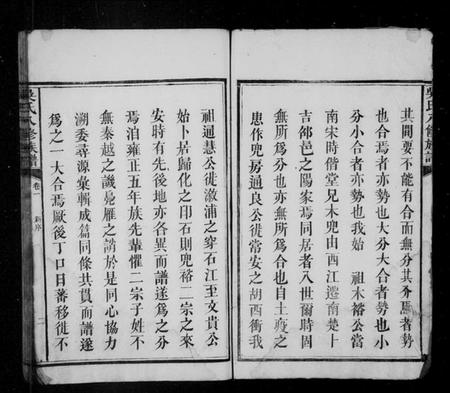 其間要不能有合而無分其不焉者勢
也合焉者亦勢也大分大合者勢也小
分小合者亦勢也我始 祖木裕公當
南宋時偕堂兄木兜由西江遷南楚上
吉邰邑之陽家焉同居者八世爾時固
無所為分也亦無所為合也自土疫之
患作兜房通良公徙常安之胡西衝我
祖通慧公徙漵浦之穿石江至文貴公
始卜居歸化之印石則兜裕二宗之來
安時有先後地亦各異而譜遂為之分
焉洎雍正五年族先輩懼二宗子姓不
無秦越之譏是雁之誚於是同心協力
溯委尋源彙輯成篇同條共貫而譜遂
為之一大合焉厥後丁口日蕃移徙不
吳氏八修族譜
卷一
新序